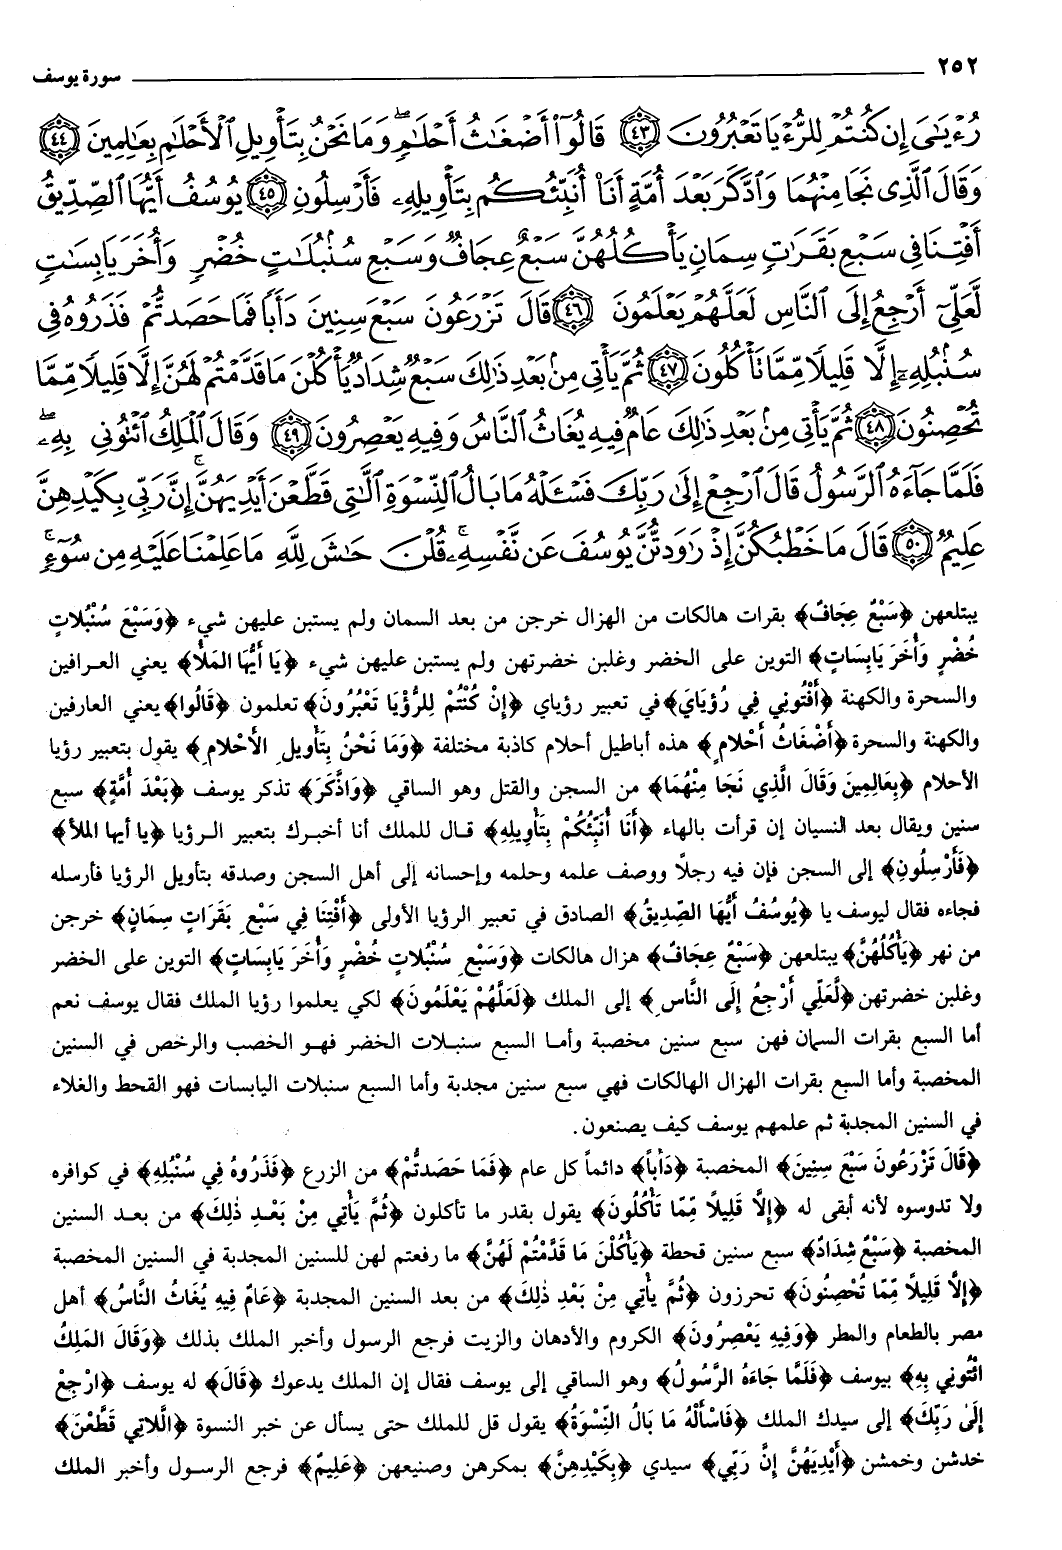 ٢٥٢ سورة يوسف
رُءْيَـٰىَ إِن كُنتُمْ لِلرُّءْيَا تَعْبُرُونَ ٤٣ قَالُوٓا۟ أَضْغَـٰثُ أَحْلَـٰمٍۖ وَمَا نَحْنُ بِتَأْوِيلِ ٱلْأَحْلَـٰمِ بِعَـٰلِمِينَ ٤٤
وَقَالَ ٱلَّذِى نَجَا مِنْهُمَا وَٱدَّكَرَ بَعْدَ أُمَّةٍ أَنَا۠ أُنَبِّئُكُم بِتَأْوِيلِهِۦ فَأَرْسِلُونِ ٤٥ يُوسُفُ أَيُّهَا ٱلصِّدِّيقُ
أَفْتِنَا فِى سَبْعِ بَقَرَٰتٍ سِمَانٍ يَأْكُلُهُنَّ سَبْعٌ عِجَافٌ وَسَبْعِ سُنۢبُلَـٰتٍ خُضْرٍ وَأُخَرَ يَابِسَـٰتٍ
لَّعَلِّىٓ أَرْجِعُ إِلَى ٱلنَّاسِ لَعَلَّهُمْ يَعْلَمُونَ ٤٦ قَالَ تَزْرَعُونَ سَبْعَ سِنِينَ دَأَبًا فَمَا حَصَدتُّمْ فَذَرُوهُ فِى
سُنۢبُلِهِۦٓ إِلَّا قَلِيلًا مِّمَّا تَأْكُلُونَ ٤٧ ثُمَّ يَأْتِى مِنۢ بَعْدِ ذَٰلِكَ سَبْعٌ شِدَادٌ يَأْكُلْنَ مَا قَدَّمْتُمْ لَهُنَّ إِلَّا قَلِيلًا مِّمَّا
تُحْصِنُونَ ٤٨ ثُمَّ يَأْتِى مِنۢ بَعْدِ ذَٰلِكَ عَامٌ فِيهِ يُغَاثُ ٱلنَّاسُ وَفِيهِ يَعْصِرُونَ ٤٩ وَقَالَ ٱلْمَلِكُ ٱئْتُونِى بِهِۦۖ
فَلَمَّا جَآءَهُ ٱلرَّسُولُ قَالَ ٱرْجِعْ إِلَىٰ رَبِّكَ فَسْـَٔلْهُ مَا بَالُ ٱلنِّسْوَةِ ٱلَّـٰتِى قَطَّعْنَ أَيْدِيَهُنَّۚ إِنَّ رَبِّى بِكَيْدِهِنَّ
عَلِيمٌ ٥٠ قَالَ مَا خَطْبُكُنَّ إِذْ رَٰوَدتُّنَّ يُوسُفَ عَن نَّفْسِهِۦۚ قُلْنَ حَـٰشَ لِلَّهِ مَا عَلِمْنَا عَلَيْهِ مِن سُوٓءٍۚ
يبتلعهن ﴿سَبْعٌ عِجَافٌ﴾ بقرات هالكات من الهزال خرجن من بعد السمان ولم يستبن عليهن شيء ﴿وَسَبْعَ سُنْبُلاتٍ
خُضْرٍ وَأُخَرَ يَابِسَاتٍ﴾ التوين على الخضر وغلبن خضرتهن ولم يستبن عليهن شيء ﴿يَا أَيُّهَا المَلأُ﴾ يعني العرافين
والسحرة والكهنة ﴿أَفْتُونِي فِي رُؤْيَايَ﴾ في تعبير رؤياي ﴿إِنْ كُنْتُمْ لِلرُّؤْيَا تَعْبُرُونَ﴾ تعلمون ﴿قَالُوا﴾ يعني العارفين
والكهنة والسحرة ﴿أَضْغَاثُ أَحْلامٍ﴾ هذه أباطيل أحلام كاذبة مختلفة ﴿وَمَا نَحْنُ بِتَأْوِيلِ الأَحْلامِ﴾ يقول بتعبير رؤيا
الأحلام ﴿بِعَالِمِينَ وَقَالَ الَّذِي نَجَا مِنْهُمَا﴾ من السجن والقتل وهو الساقي ﴿وَادَّكَرَ﴾ تذكر يوسف ﴿بَعْدَ أُمَّةٍ﴾ سبع
سنين ويقال بعد النسيان إن قرأت بالهاء ﴿أَنَا أُنَبِّئُكُمْ بِتَأْوِيلِهِ﴾ قال للملك أنا أخبرك بتعبير الرؤيا ﴿يا أيها الملأ﴾
﴿فَأَرْسِلُونِ﴾ إلى السجن فإن فيه رجلاً ووصف علمه وحلمه وإحسانه إلى أهل السجن وصدقه بتأويل الرؤيا فأرسله
فجاءه فقال ليوسف يا ﴿يُوسُفُ أَيُّهَا الصِّدِيقُ﴾ الصادق في تعبير الرؤيا الأولى ﴿أَفْتِنَا فِي سَبْعِ بَقَرَاتٍ سِمَانٍ﴾ خرجن
من نهر ﴿يَأْكُلُهُنَّ﴾ يبتلعهن ﴿سَبْعٌ عِجَافٌ﴾ هزال هالكات ﴿وَسَبْعِ سُنْبُلاتٍ خُضْرٍ وَأُخَرَ يَابِسَاتٍ﴾ التوين على الخضر
وغلبن خضرتهن ﴿لَعَلِّي أَرْجِعُ إِلَى النَّاسِ﴾ إلى الملك ﴿لَعَلَّهُمْ يَعْلَمُونَ﴾ لكي يعلموا رؤيا الملك فقال يوسف نعم
أما السبع بقرات السمان فهن سبع سنين مخصبة وأما السبع سنبلات الخضر فهو الخصب والرخص في السنين
المخصبة وأما السبع بقرات الهزال الهالكات فهي سبع سنين مجدبة وأما السبع سنبلات اليابسات فهو القحط والغلاء
في السنين المجدبة ثم علمهم يوسف كيف يصنعون.
﴿قَالَ تَزْرَعُونَ سَبْعَ سِنِينَ﴾ المخصبة ﴿دَأَباً﴾ دائماً كل عام ﴿فَمَا حَصَدتُّمْ﴾ من الزرع ﴿فَذَرُوهُ فِي سُنْبُلِهِ﴾ في كوافره
ولا تدوسوه لأنه أبقى له ﴿إِلَّا قَلِيلاً مِّمّا تَأْكُلُونَ﴾ يقول بقدر ما تأكلون ﴿ثُمَّ يَأْتِي مِنْ بَعْدِ ذَلِكَ﴾ من بعد السنين
المخصبة ﴿سَبْعٌ شِدَادٌ﴾ سبع سنين قحطة ﴿يَأْكُلْنَ مَا قَدَّمْتُمْ لَهُنَّ﴾ ما رفعتم لهن للسنين المجدبة في السنين المخصبة
﴿إِلَّا قَلِيلاً مِّمَّا تُحْصِنُونَ﴾ تحرزون ﴿ثُمَّ يأْتِي مِنْ بَعْدِ ذلِكَ﴾ من بعد السنين المجدبة ﴿عَامٌ فِيهِ يُغَاثُ النَّاسُ﴾ أهل
مصر بالطعام والمطر ﴿وَفِيهِ يَعْصِرُونَ﴾ الكروم والأدهان والزيت فرجع الرسول وأخبر الملك بذلك ﴿وَقَالَ المَلِكُ
ائْتُونِي بِهِ﴾ بيوسف ﴿فَلَمَّا جَاءَهُ الرَّسُولُ﴾ وهو الساقي إلى يوسف فقال إن الملك يدعوك ﴿قَالَ﴾ له يوسف ﴿ارْجِعْ
إِلَى رَبِّكَ﴾ إلى سيدك الملك ﴿فَاسْأَلْهُ مَا بَالُ النِّسْوَةُ﴾ يقول قل للملك حتى يسأل عن خبر النسوة ﴿الَّلاتِي قَطَّعْنَ﴾
خدشن وخمشن ﴿أَيْدِيَهُنَّ إِنَّ رَبِّي﴾ سيدي ﴿بِكَيْدِهِنَّ﴾ بمكرهن وصنيعهن ﴿عَلِيمٌ﴾ فرجع الرسول وأخبر الملك